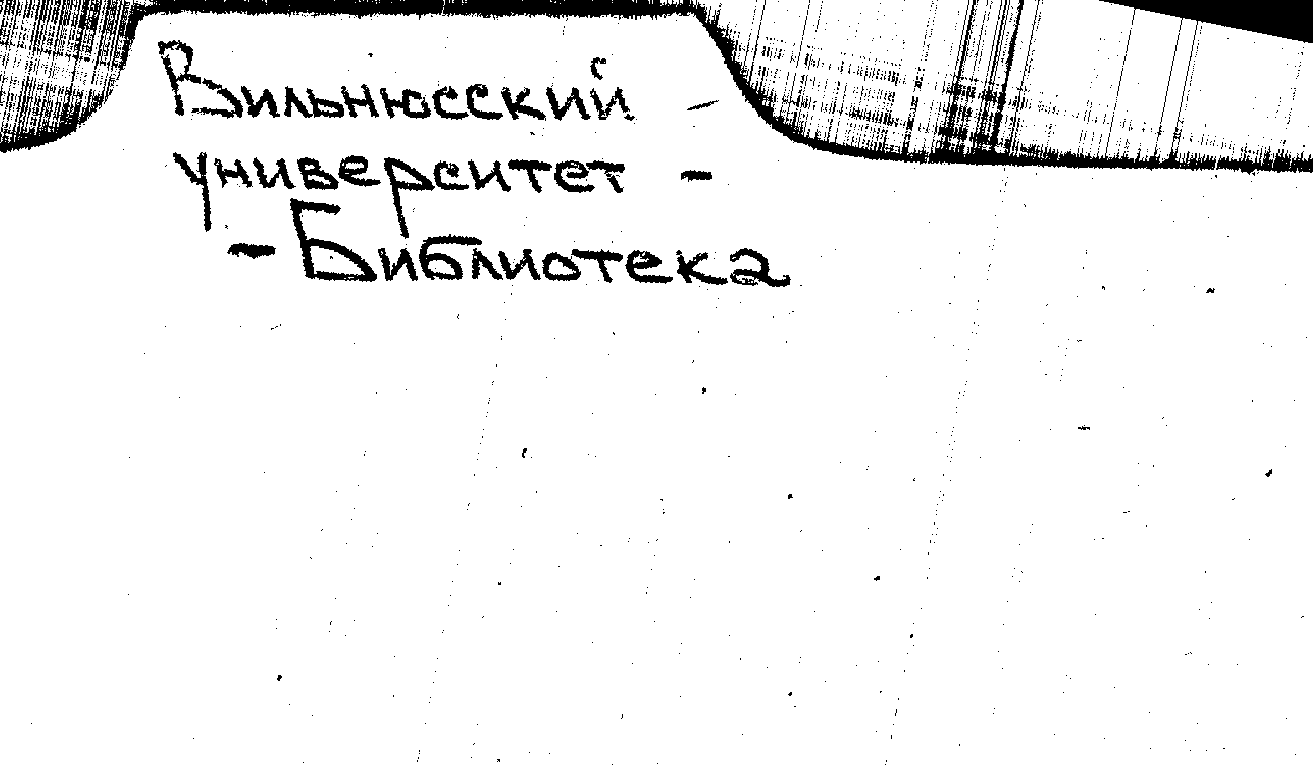 Вильнюсский
университет -
- Библиотека